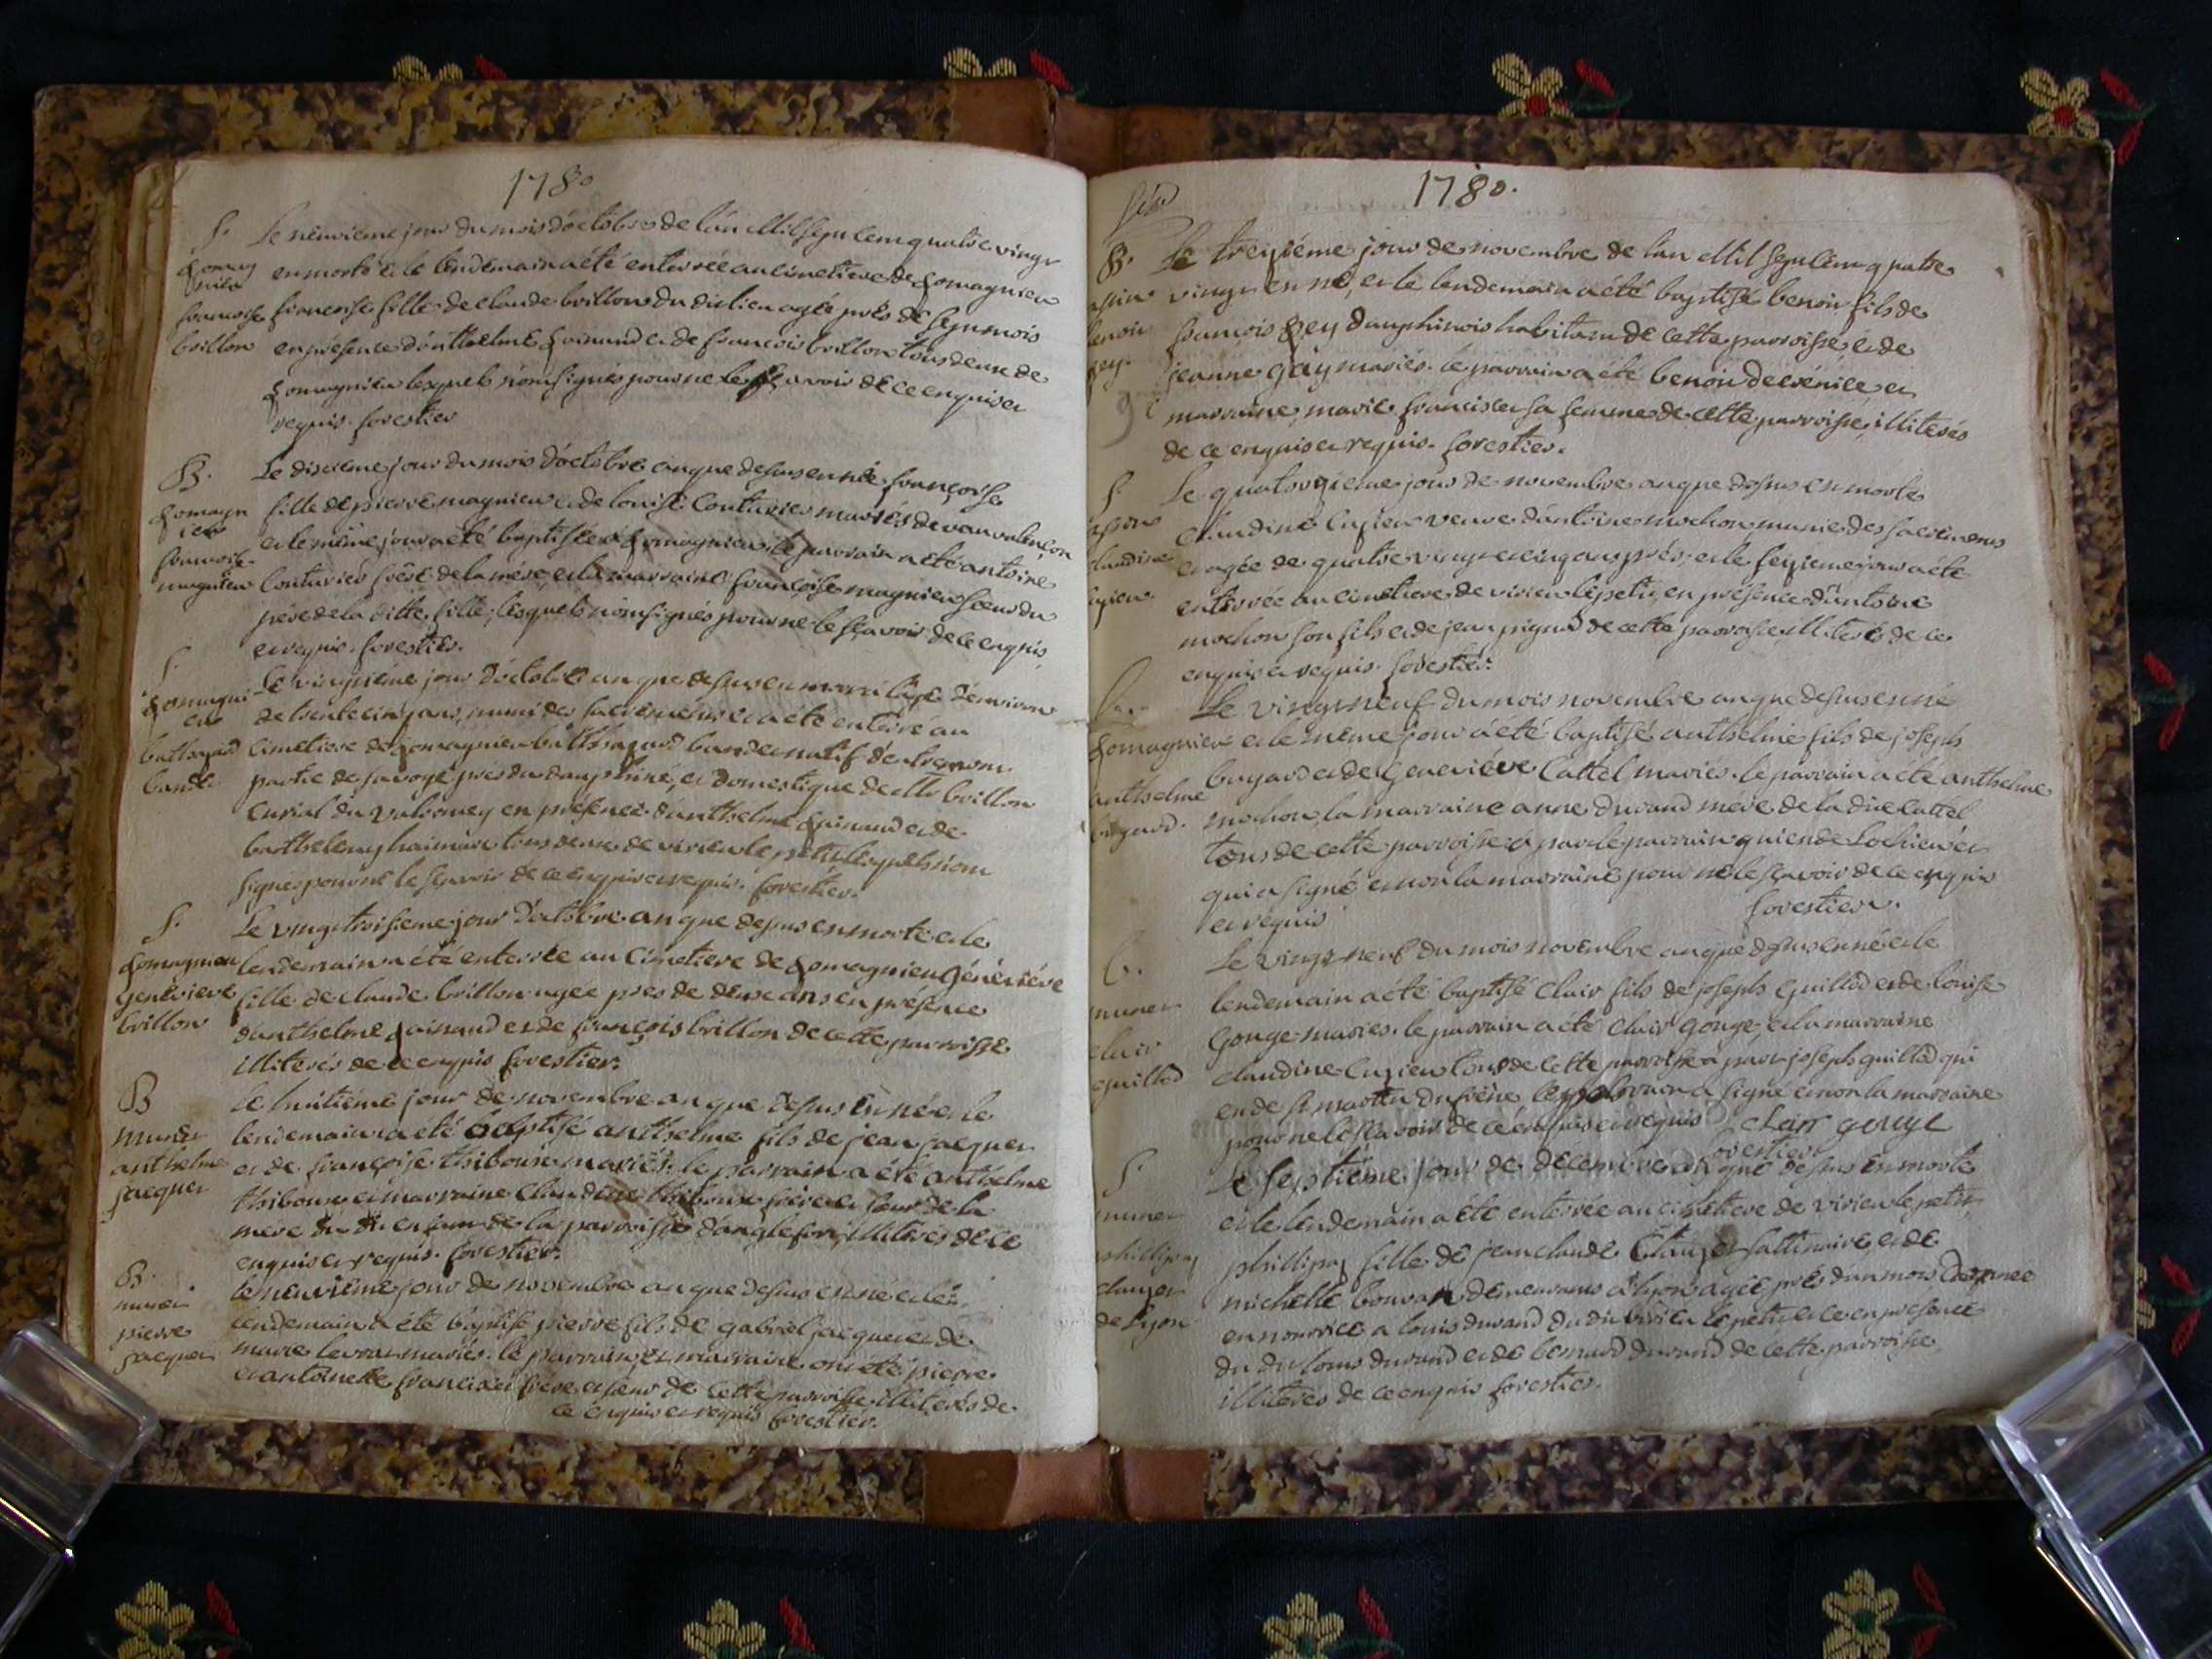 1780
S. Le neuvieme jour du mois d'octobre de l'an Mil sept cent quatre vingt
est morte et le lendemain a été enterrée au cimetiere de Lomagnieu
francoise francoise fille de claude brillon du dit lieu agée près de sept mois
brillon en présence d'anthelme et de francois brillon tous deux de
Lomagnieu lesquels n'ont signés pour ne le sçavoir de ce enquis et
requis. forestier
B. Le dixieme jour du mois d'octobre an que dessus est née françoise
fille de pierre magnieu et de louise Couturier mariés de
et le même jour a été baptisée à Lomagnieu le parrain a été antoine
magnieu Couturier frère de la mère, et la marraine françoise magnieu soeur du
père de la ditte fille, lesquels n'ont signés pour ne le sçavoir de ce enquis
et requis. forestier.
S. Le vingtième jour d'octobre an que dessus est mort d'environ
de trente cinq ans, muni des sacrements et a été enterré au
balthazard cimetiere de Lomagnieu balthazard natif d'entremont
partie de savoye près du dauphiné, et domestique de brillon
curial du valromey en présence d'anthelme et de
barthelemy tous deux de virieu le petit lesquels n'ont
signés pour ne le sçavoir de ce enquis et requis. forestier.
S. Le vingt troisieme jour d'octobre an que dessus est morte et le
Lomagnieu lendemain a été enterrée au Cimetiere de Lomagnieu Généviéve
Genevieve fille de claude brillon agée près de deux ans en présence
brillon d'anthelme et de françois brillon de cette parroisse
illiterés de ce enquis forestier.
B le huitième jour de novembre an que dessus est né et le
munet lendemain a été baptisé anthelme fils de jean jacquet
anthelme et de françoise thiboux mariés. le parrain a été anthelme
jacquet thiboux et marraine claudine thiboux frère et soeur de la
mere du dit enfant de la parroisse d'anglefort, illiterés de ce
enquis et requis. forestier.
B. le neuvième jour de novembre an que dessus est né et le
munet lendemain a été baptisé pierre fils de gabriel jacquet et de
pierre marie mariés. le parrain, et marraine ont été pierre
jacquet et antoinette francixet frère et soeur de cette parroisse illiterés de
ce enquis et requis forestier.
1780.
B. Le treizième jour de novembre de l'an Mil sept cent quatre
vingt est né, et le lendemain a été baptisé benoit fils de
benoit francois rey dauphinois habitant de cette parroisse et de
rey. jeanne gay mariés. le parrain a été benoit et
marraine, marie francixet sa femme de cette parroisse, illiterés
de ce enquis et requis. forestier.
S. Le quatorzieme jour de novembre an que dessus est morte
claudine luzieu veuve d'antoine mochon munie des sacrements
claudine et agée de quatre vingt et cinq ans près, et le seizieme jour a été
luzieu enterrée au cimetiere de virieu le petit, en présence d'antoine
mochon son fils et de jean de cette parroisse illiterés de ce
enquis et requis. forestier.
Le vingt neuf du mois novembre an que dessus est né
Lomagnieu et le même jour a été baptisé anthelme fils de joseph
anthelme bugard et de Geneviéve Cattel mariés. le parrain a été anthelme
bugard. mochon, la marraine anne durand mere de la dite Cattel
tous de cette parroisse à part le parrain qui est de Lochieu et
qui a signé et non la marraine pour ne le sçavoir de ce enquis
et requis forestier.
b. Le vingt neuf du mois novembre an que dessus est né et le
munet lendemain a été baptisé clair fils de joseph guillod et de louise
clair Gonge mariés. le parrain a été clair Gonge, et la marraine
guillod claudine luzieu tous de cette parroisse à part joseph guillod qui
est de st martin le parrain a signé et non la marraine
pour ne le sçavoir de ce enquis et requis clair gonge
forestier
S. Le septième jour de decembre an que dessus est morte
munet et le lendemain a été enterrée au cimetiere de virieu le petit
phillipa fille de jean claude et de
michelle demeurants à lyon agée près d'un mois donnée
de Lyon en nourrice a louis durand du dit virieu le petit et ce en présence
du dit louis durand et de bernard durand de cette parroisse
illiterés de ce enquis forestier.